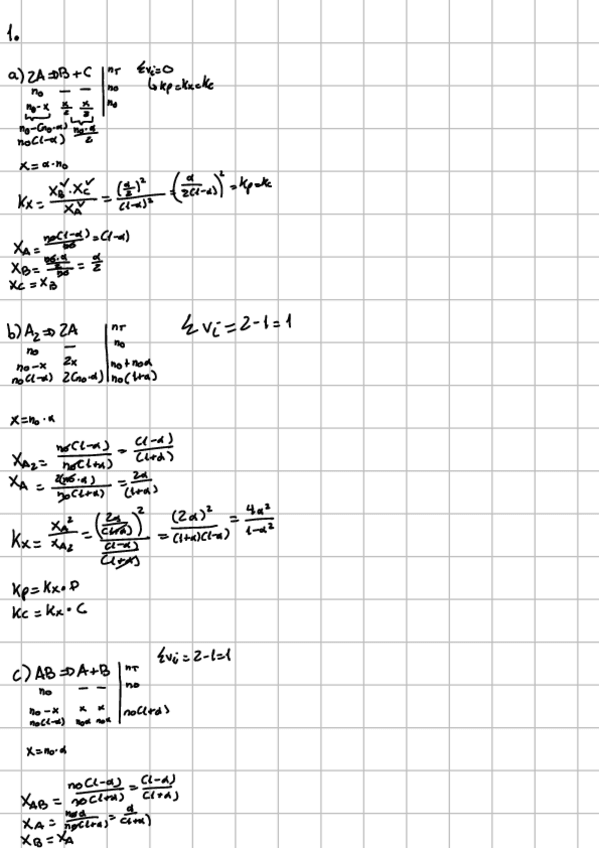 1.
a) 2A ⇌ B + C | nT Σνi=0
n₀ — — | n₀ ↳ Kp=Kx=Kc
n₀-x x/2 x/2 | n₀
n₀-(n₀·α) n₀·α/2
n₀(1-α)
x = α·n₀
Kx = XB^ν · XC^ν / XA^ν = (α/2)² / (1-α)² = (α / 2(1-α))² = Kp=Kc
XA = n₀(1-α)/n₀ = (1-α)
XB = (n₀·α/2)/n₀ = α/2
XC = XB
b) A₂ ⇌ 2A | nT Σ νi = 2-1 = 1
n₀ — | n₀
n₀-x 2x | n₀+n₀α
n₀(1-α) 2(n₀·α) | n₀(1+α)
x = n₀·α
XA₂ = n₀(1-α) / n₀(1+α) = (1-α) / (1+α)
XA = 2(n₀·α) / n₀(1+α) = 2α / (1+α)
Kx = XA² / XA₂ = (2α / (1+α))² / ((1-α) / (1+α)) = (2α)² / (1+α)(1-α) = 4α² / 1-α²
Kp = Kx · P
Kc = Kx · C
c) AB ⇌ A + B | nT Σνi = 2-1=1
n₀ — — | n₀
n₀-x x x | n₀(1+α)
n₀(1-α) n₀α n₀α
x = n₀·α
XAB = n₀(1-α) / n₀(1+α) = (1-α) / (1+α)
XA = n₀α / n₀(1+α) = α / (1+α)
XB = XA